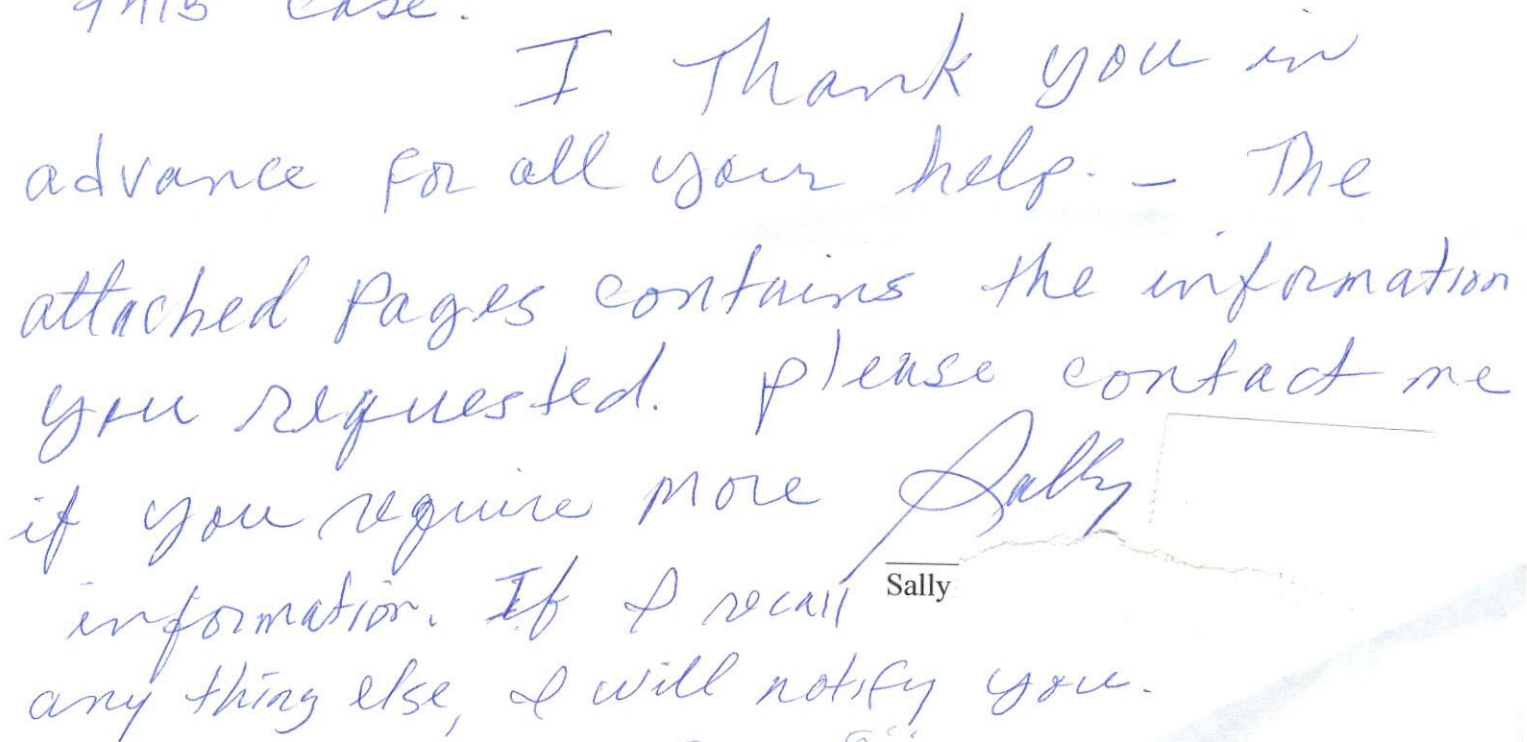 this case.
I Thank you in
advance for all your help. - The
attached pages contains the information
you requested. please contact me
if you require more Sally
Sally
information. If I recall
any thing else, I will notify you.